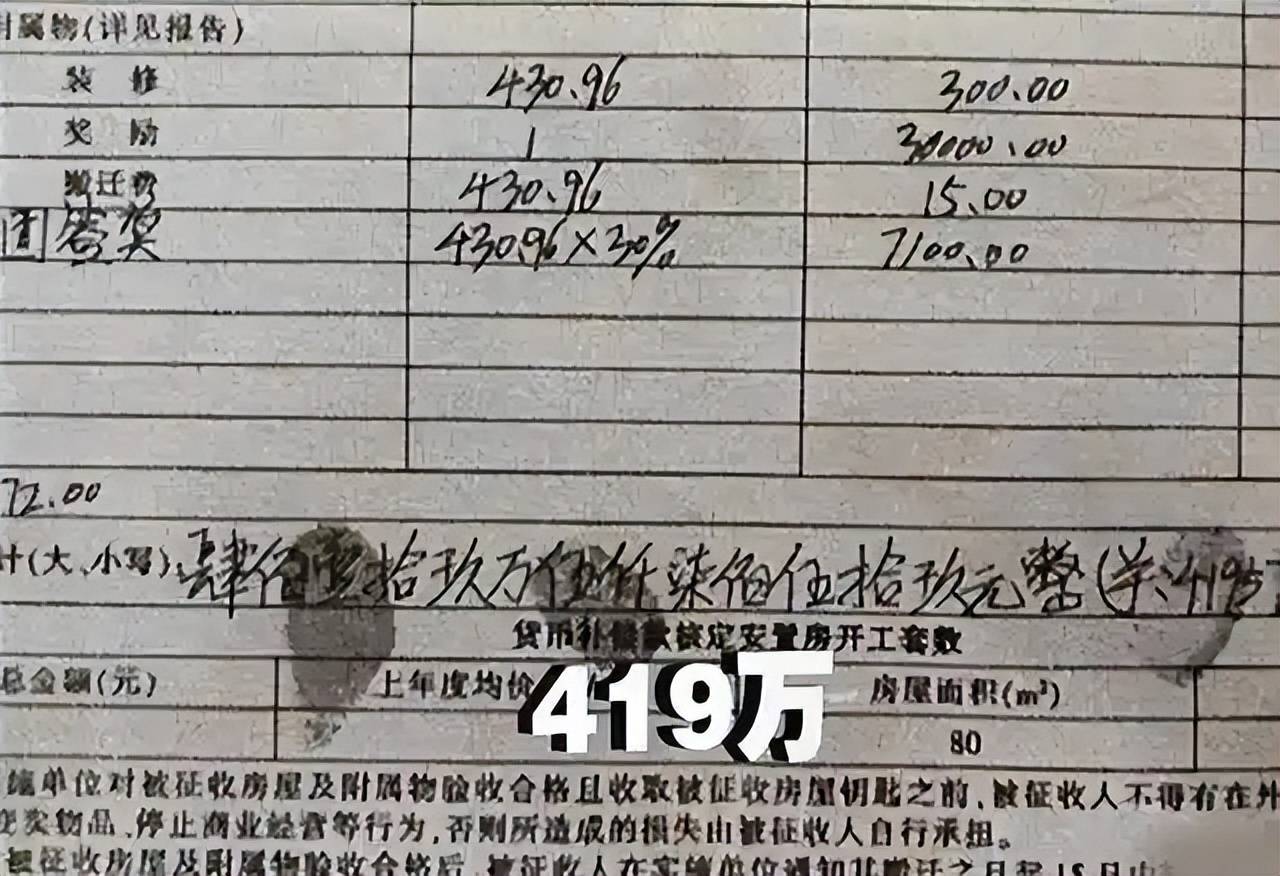 附属物(详见报告)
装 修 430.96 300.00
奖 励 1 30000.00
搬迁费 430.96 15.00
团签奖 430.96×30% 7100.00
72.00
计(大、小写):肆佰壹拾玖万伍仟柒佰伍拾玖元整(￥:4195
货币补偿款核定安置房开工套数
总金额(元) 上年度均价 房屋面积(m²)
419万
80
施单位对被征收房屋及附属物验收合格且收取被征收房屋钥匙之前,被征收人不得有在外
变卖物品、停止商业经营等行为,否则所造成的损失由被征收人自行承担。
被征收房屋及附属物验收合格后,被征收人在实施单位通知其搬迁之日起15日内